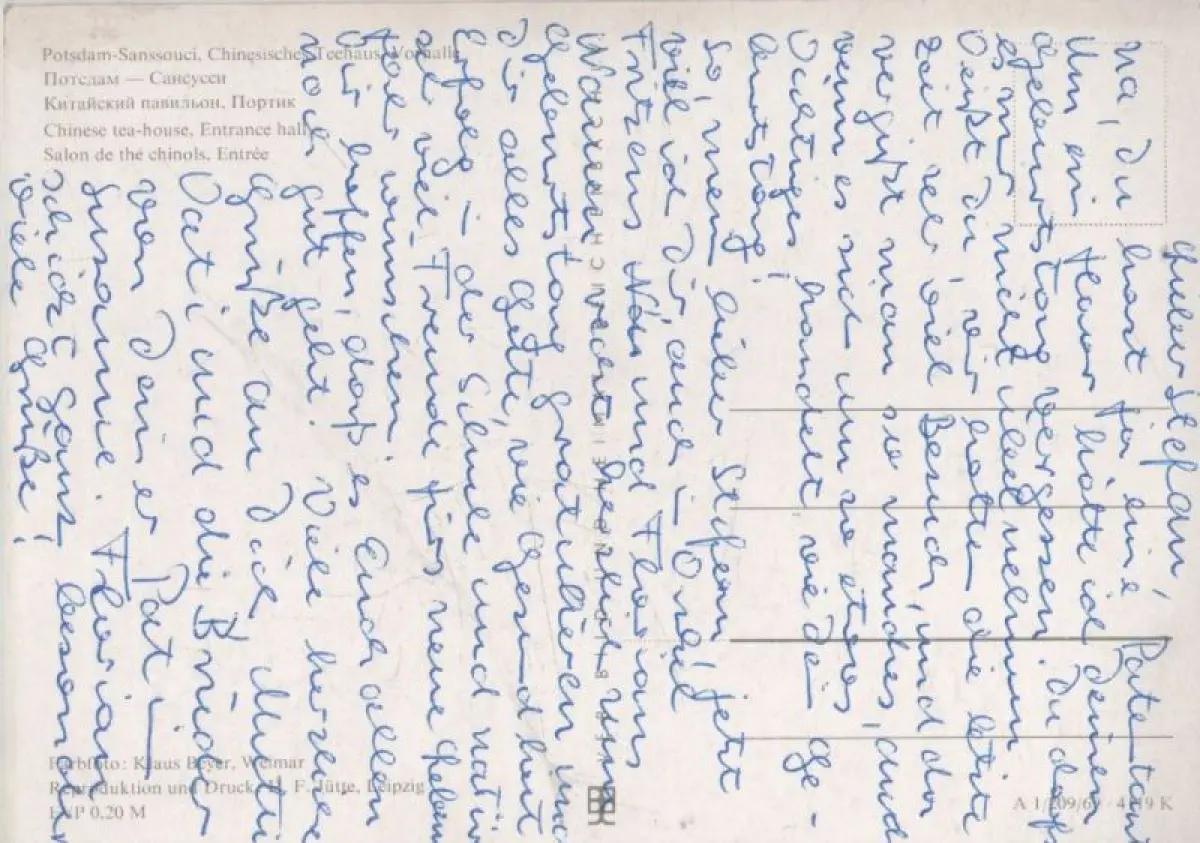 Potsdam-Sanssouci, Chinesisches Teehaus, Vorhalle
Потсдам — Сансуси
Китайский павильон, Портик
Chinese tea-house, Entrance hall
Salon de thé chinols, Entrée
Lieber Stefan!
Na, Du hast ja eine Patetante
Um ein Haar hätte ich Deinen
Geburtstag vergessen. Du darfst
es mir nicht übel nehmen
Weißt Du, wir hatten die letzte
Zeit sehr viel Besuch, und da
vergißt man so manches, auch
wenn es sich um so etwas
Wichtiges handelt wie Dein Ge-
burtstag!
So, mein lieber Stefan jetzt
will ich Dir auch – Onkel
und Florians
Namen herzlich zum
Geburtstag gratulieren und
Dir alles Gute, wie Gesundheit
Erfolg in der Schule und natür
sehr viel Freude fürs neue Leben
wünschen.
Wir hoffen, daß es Euch allen
noch gut geht. Viele herzliche
Grüße an Dich, Mutti
Vati und die Brüder
von Deiner Pati
Susanne. Florian
schickt ganz besonders
viele Grüße!
Farbfoto: Klaus Beyer, Weimar
Reproduktion und Druck: H. F. Jütte, Leipzig
EVP 0,20 M
K